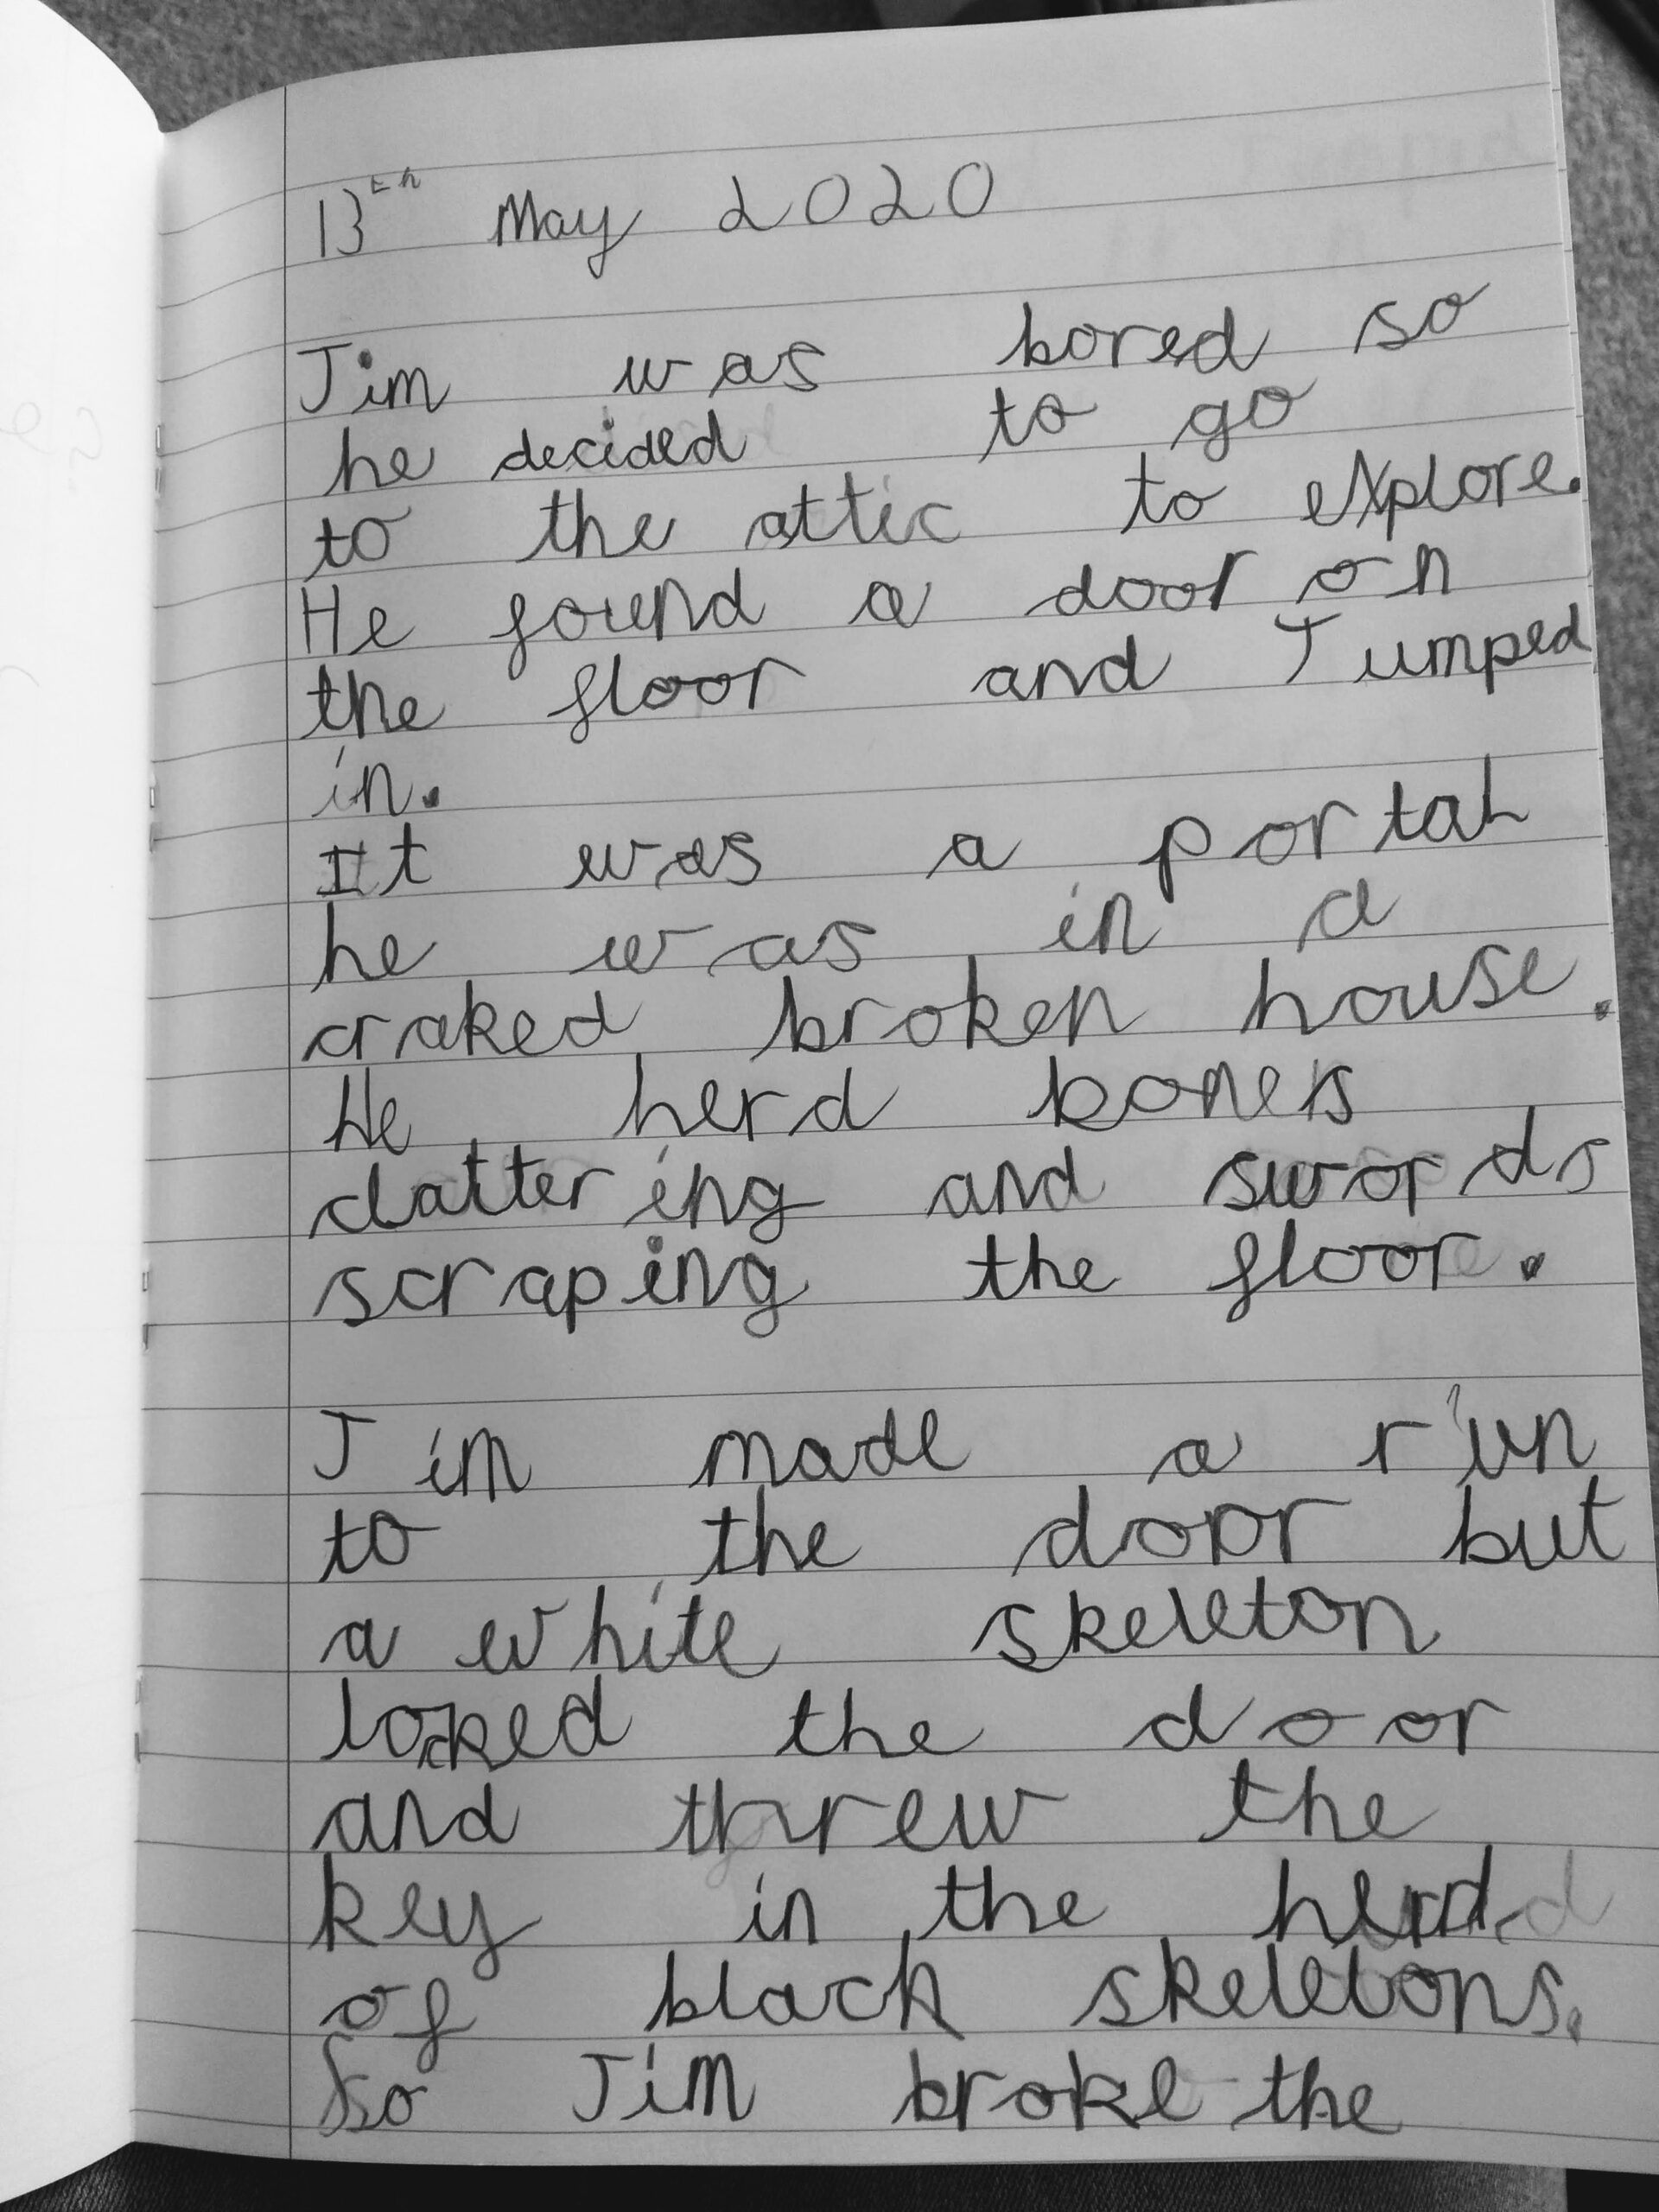 13th May 2020
Jim was bored so
he decided to go
to the attic to explore.
He found a door on
the floor and Jumped
in.
It was a portal
he was in a
craked broken house.
He herd bones
clattering and swords
scraping the floor.
Jim made a run
to the door but
a white skeleton
locked the door
and threw the
key in the herd
of black skeletons.
So Jim broke the